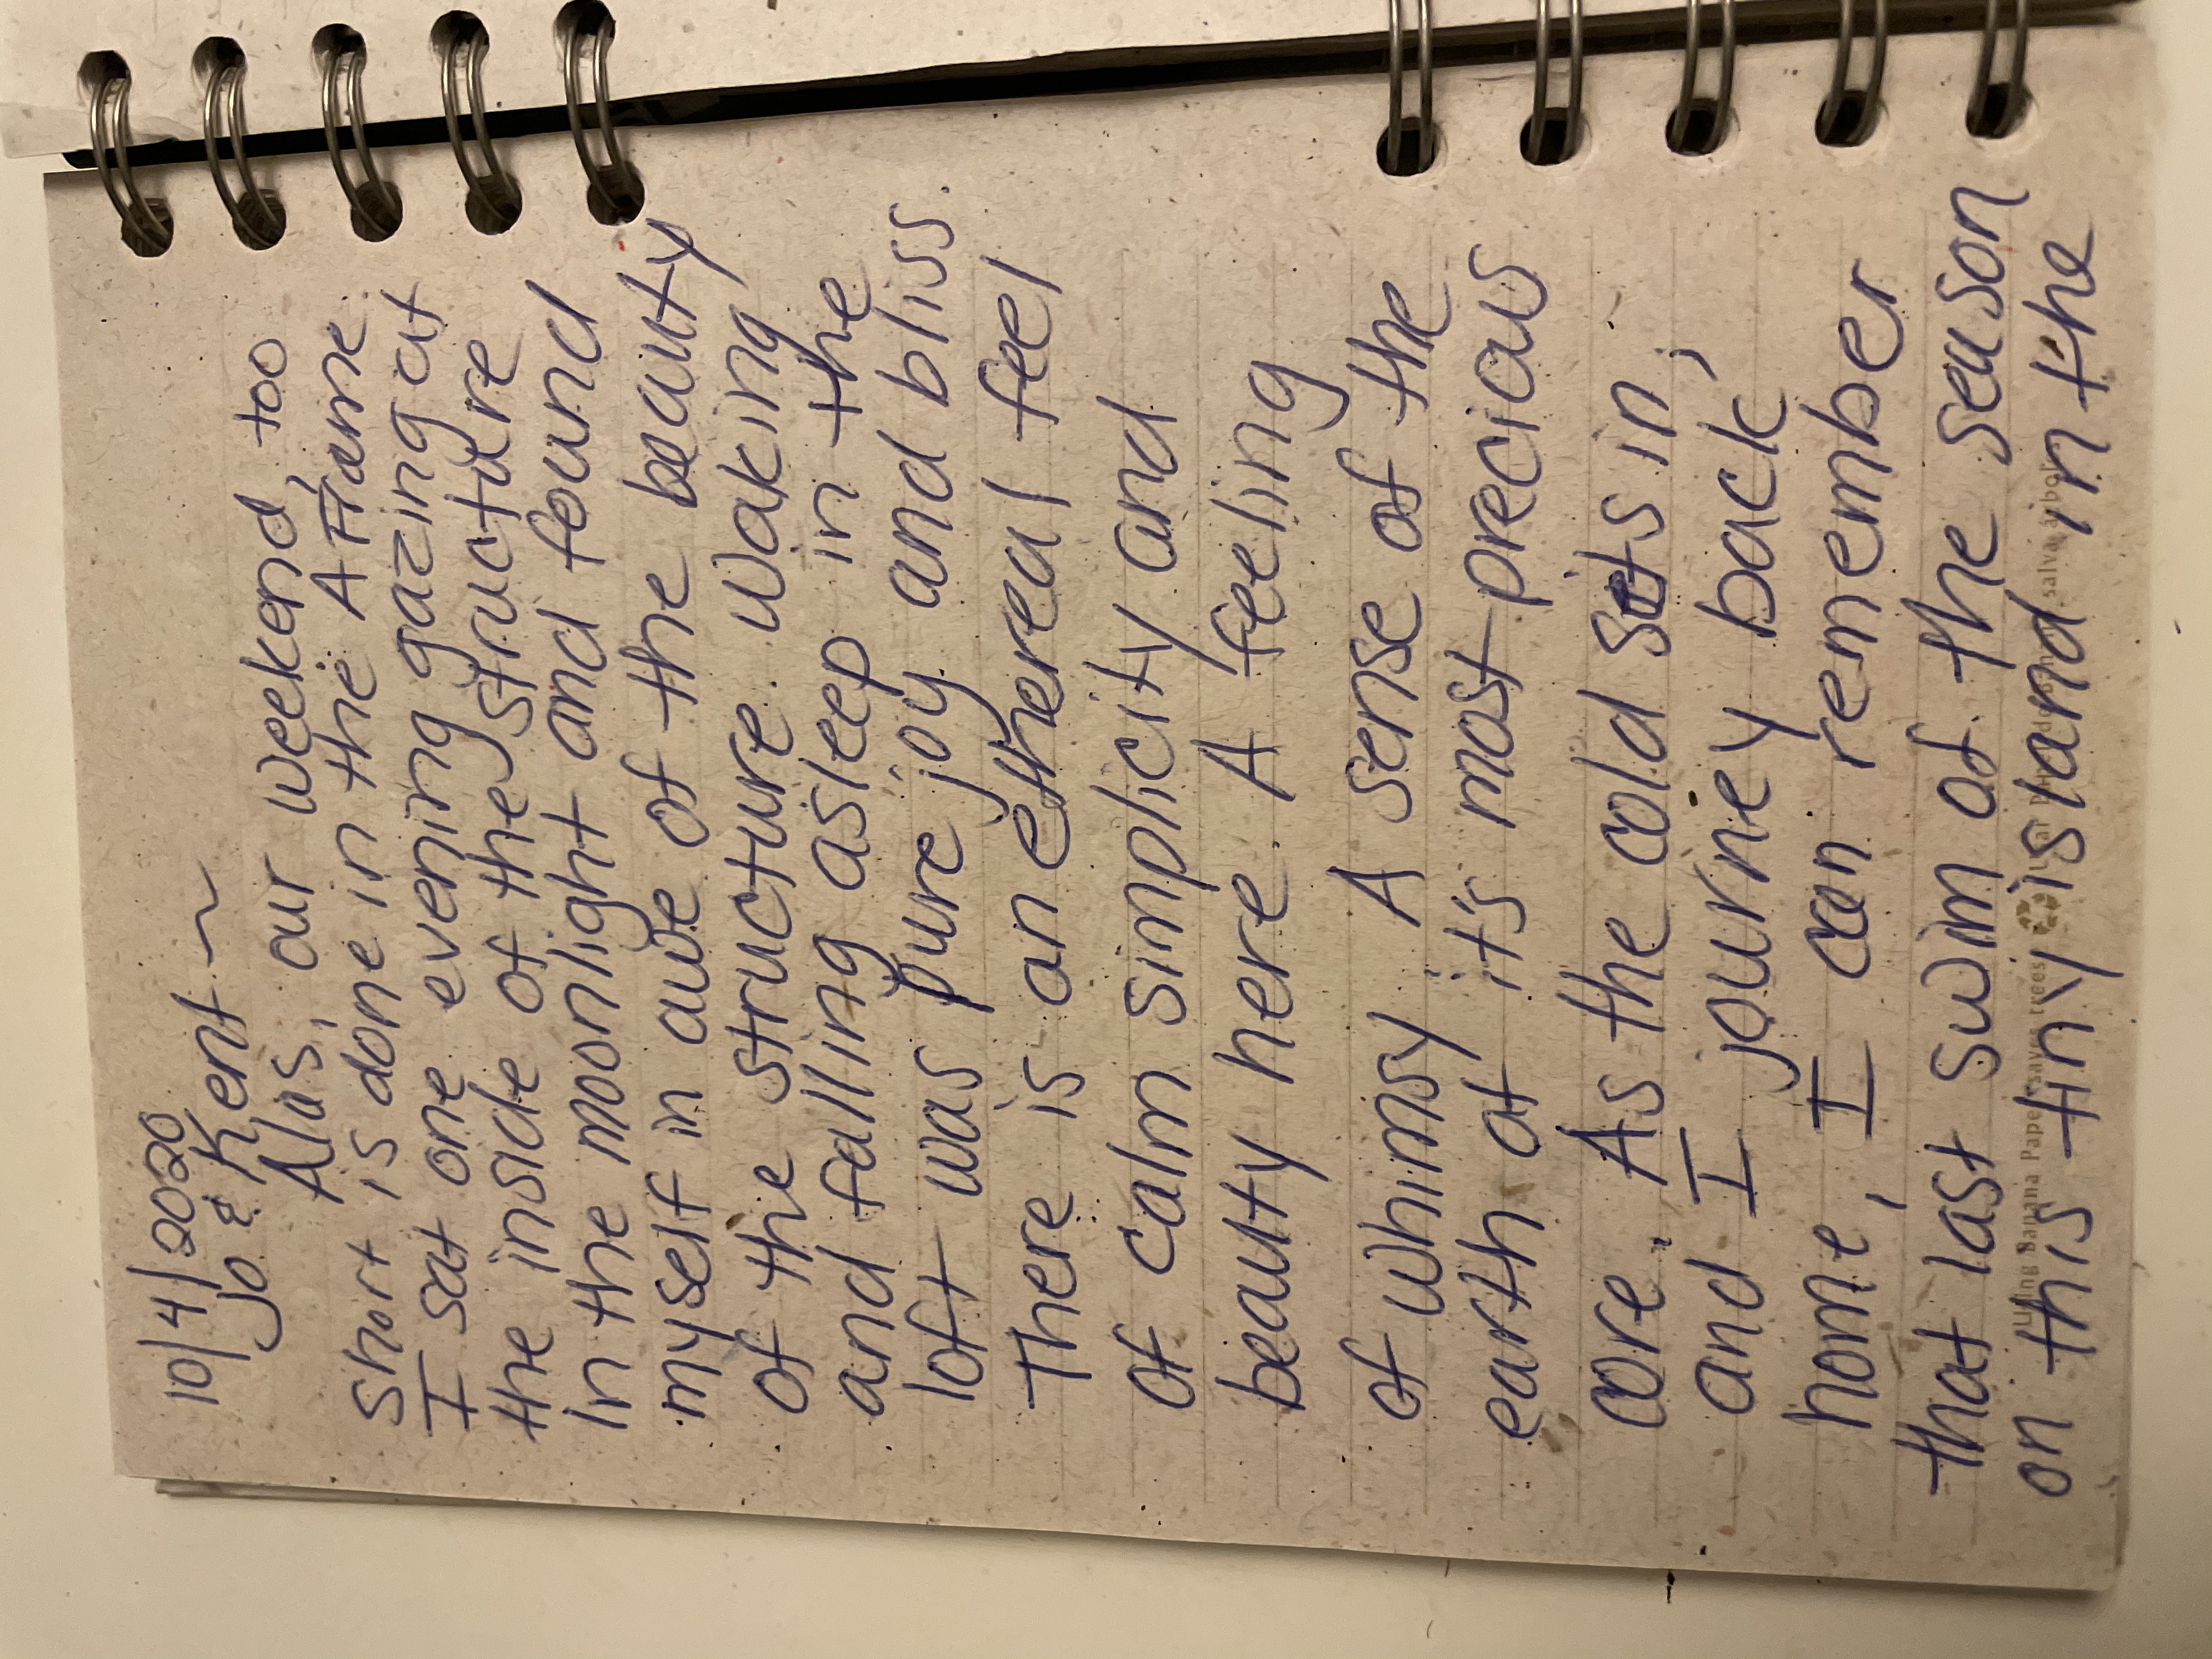 10/4/2020
Jo & Kent ~
Alas, our weekend, too
short is done in the A Frame.
I sat one evening gazing at
the inside of the structure
in the moonlight and found
myself in awe of the beauty
of the structure. Waking
and falling asleep in the
loft was pure joy and bliss.
There is an ethereal feel
of calm simplicity and
beauty here. A feeling
of whimsy. A sense of the
earth at it's most precious
core. As the cold sets in,
and I journey back
home, I can remember
that last swim of the season
Living Banana Paper saves trees
on this tiny island in the